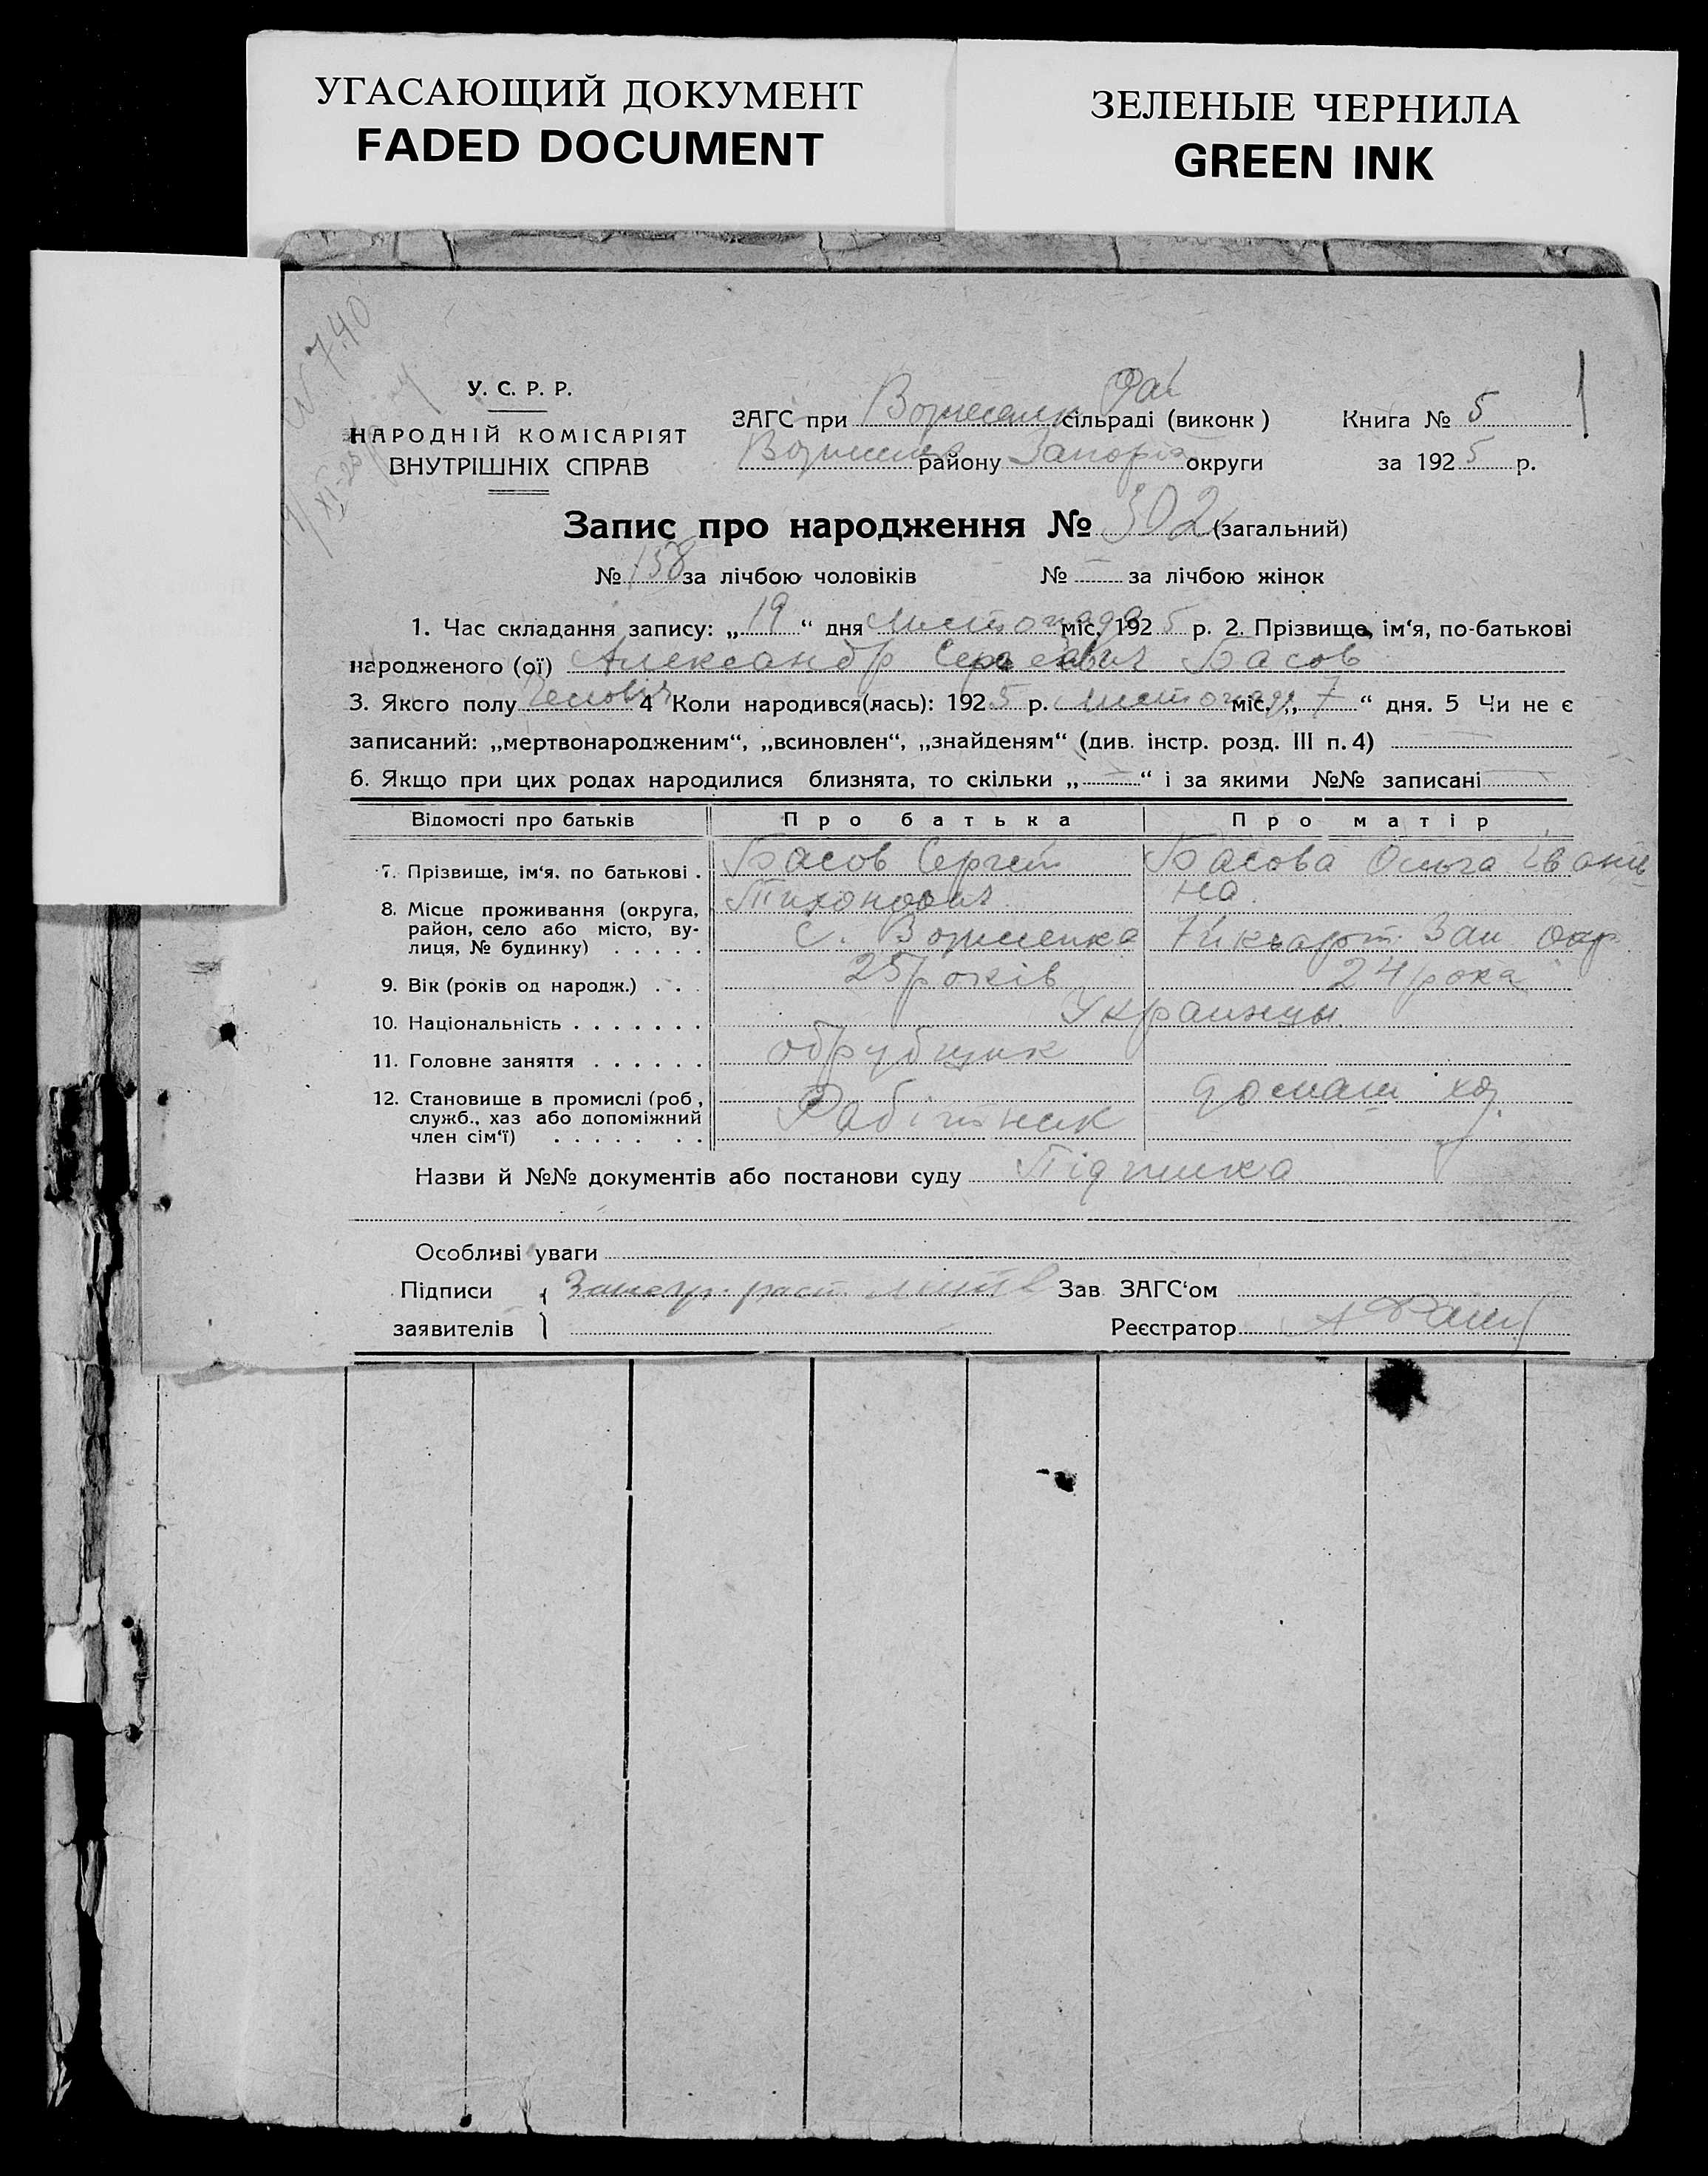 УГАСАЮЩИЙ ДОКУМЕНТ
FADED DOCUMENT
ЗЕЛЕНЫЕ ЧЕРНИЛА
GREEN INK
№ 740
У. С. Р. Р.
НАРОДНІЙ КОМІСАРІЯТ
ВНУТРІШНІХ СПРАВ
Рай
ЗАГС при сільраді (виконк) Книга № 5
району Запоріз округи за 1925 р.
Запис про народження № 302 (загальний)
№ 158 за лічбою чоловіків № — за лічбою жінок
1. Час складання запису: „19“ дня Листопада міс. 1925 р. 2. Прізвище, ім‘я, по-батькові
народженого (ої) Александр Сергеевич Басов
3. Якого полу 4 Коли народився(лась): 1925 р. Листопад міс. „7“ дня. 5 Чи не є
записаний: „мертвонародженим“, „всиновлен“, „знайденям“ (див. інстр. розд. III п. 4)
6. Якщо при цих родах народилися близнята, то скільки „—“ і за якими №№ записані
Відомості про батьків Про батька Про матір
7. Прізвище, ім‘я, по батькові . Басов Сергей Басова Ольга Івани
Тихонович на
8. Місце проживання (округа,
район, село або місто, ву-
лиця, № будинку) . . . . . с. Зап окр
9. Вік (років од народж.) . . . 25 років 24 рока
10. Національність . . . . . . . Украинцы
11. Головне заняття . . . . . . обрубщик
12. Становище в промислі (роб., домаш хоз.
служб., хаз або допоміжний Робітник
член сім‘ї) . . . . . . .
Назви й №№ документів або постанови суду Підписка
Особливі уваги
Підписи Зав. ЗАГС‘ом
заявителів Реєстратор